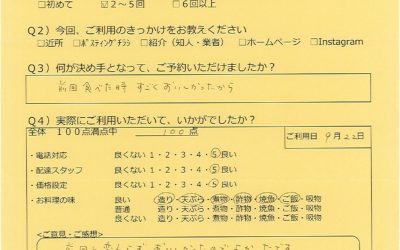 □初めて ☑2～5回 □6回以上
Q2）今回、ご利用のきっかけをお教えください
□近所 □ポスティングチラシ □紹介（知人・業者） □ホームページ □Instagram
Q3）何が決め手となって、ご予約いただけましたか？
前回食べた時 すごくおいしかったから
Q4）実際にご利用いただいて、いかがでしたか？
全体 100点満点中 100点
ご利用日 9月22日
・電話対応 良くない 1・2・3・4・5 良い
・配達スタッフ 良くない 1・2・3・4・5 良い
・価格設定 良くない 1・2・3・4・5 良い
・お料理の味 良い 造り・天ぷら・煮物・酢物・焼魚・ご飯・吸物
普通 造り・天ぷら・煮物・酢物・焼魚・ご飯・吸物
良くない 造り・天ぷら・煮物・酢物・焼魚・ご飯・吸物
＜ご意見・ご感想＞
前回と変わらず おいしかったので